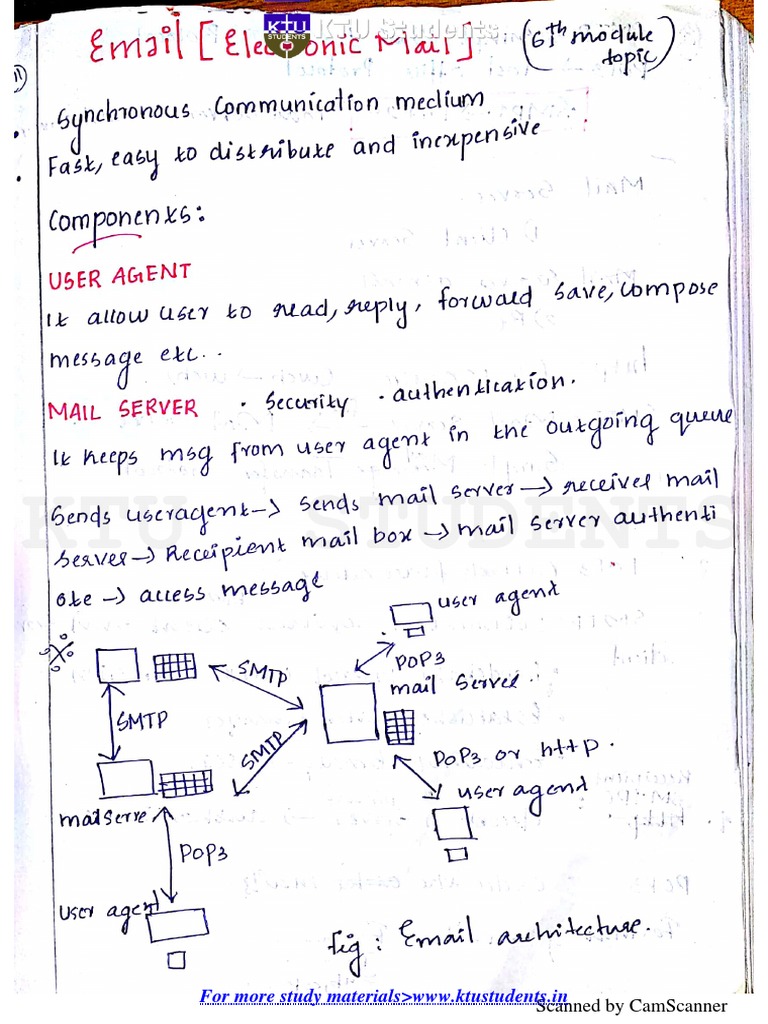 KTU Students
KTU
STUDENTS
Email [Electronic Mail] (6th module
topic)
11)
Synchronous Communication medium
Fast, easy to distribute and inexpensive
Components:
USER AGENT
It allow user to read, reply, forward save, compose
message etc..
MAIL SERVER • Security • authentication.
It keeps msg from user agent in the outgoing queue
KTU STUDENTS
Sends useragent→ sends mail server → receiver mail
server → Receipient mail box → mail server authenti
ate → access message
user agent
POP3
SMTP
mail Server.
SMTP
SMTP
POP3 or http.
user agent
mailserve
POP3
user agent
fig: Email architecture.
For more study materials>www.ktustudents.in
Scanned by CamScanner